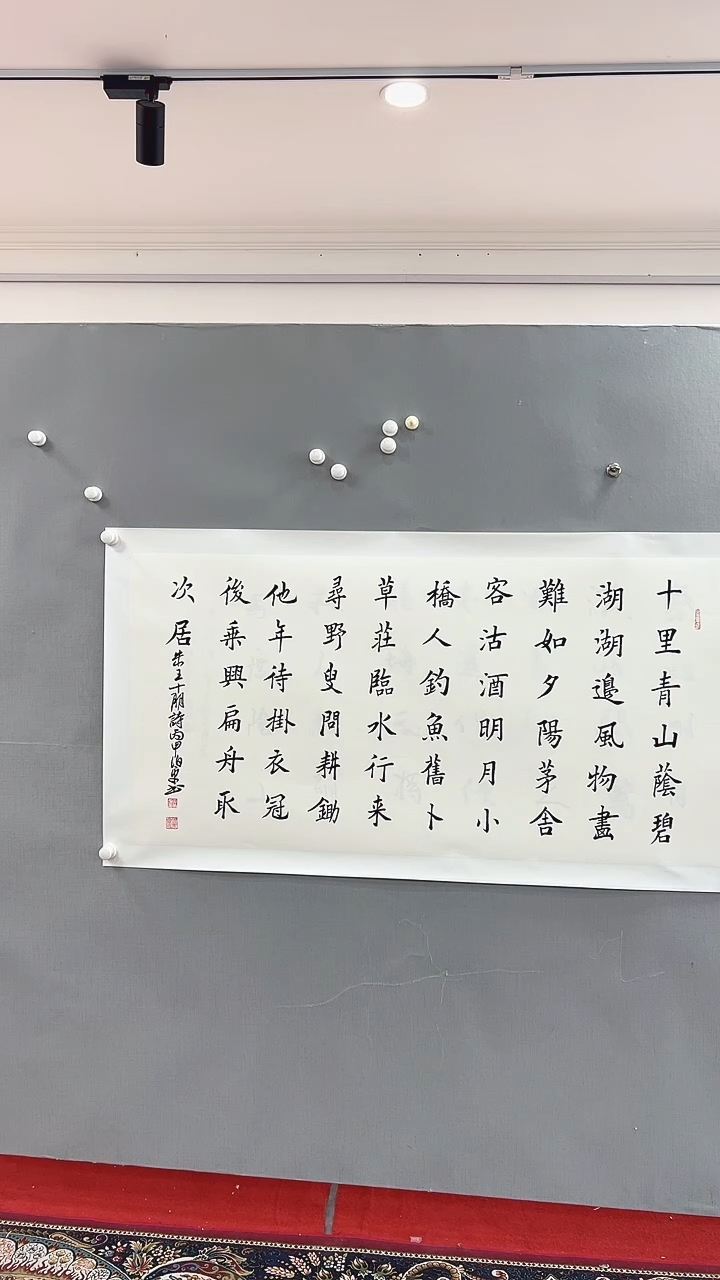 十里青山蔭碧
湖湖邊風物畫
難如夕陽茅舍
客沽酒明月小
橋人釣魚舊卜
草莊臨水行来
尋野叟問耕鋤
他年待掛衣冠
後乘興扁舟取
次居
王十朋詩丙申